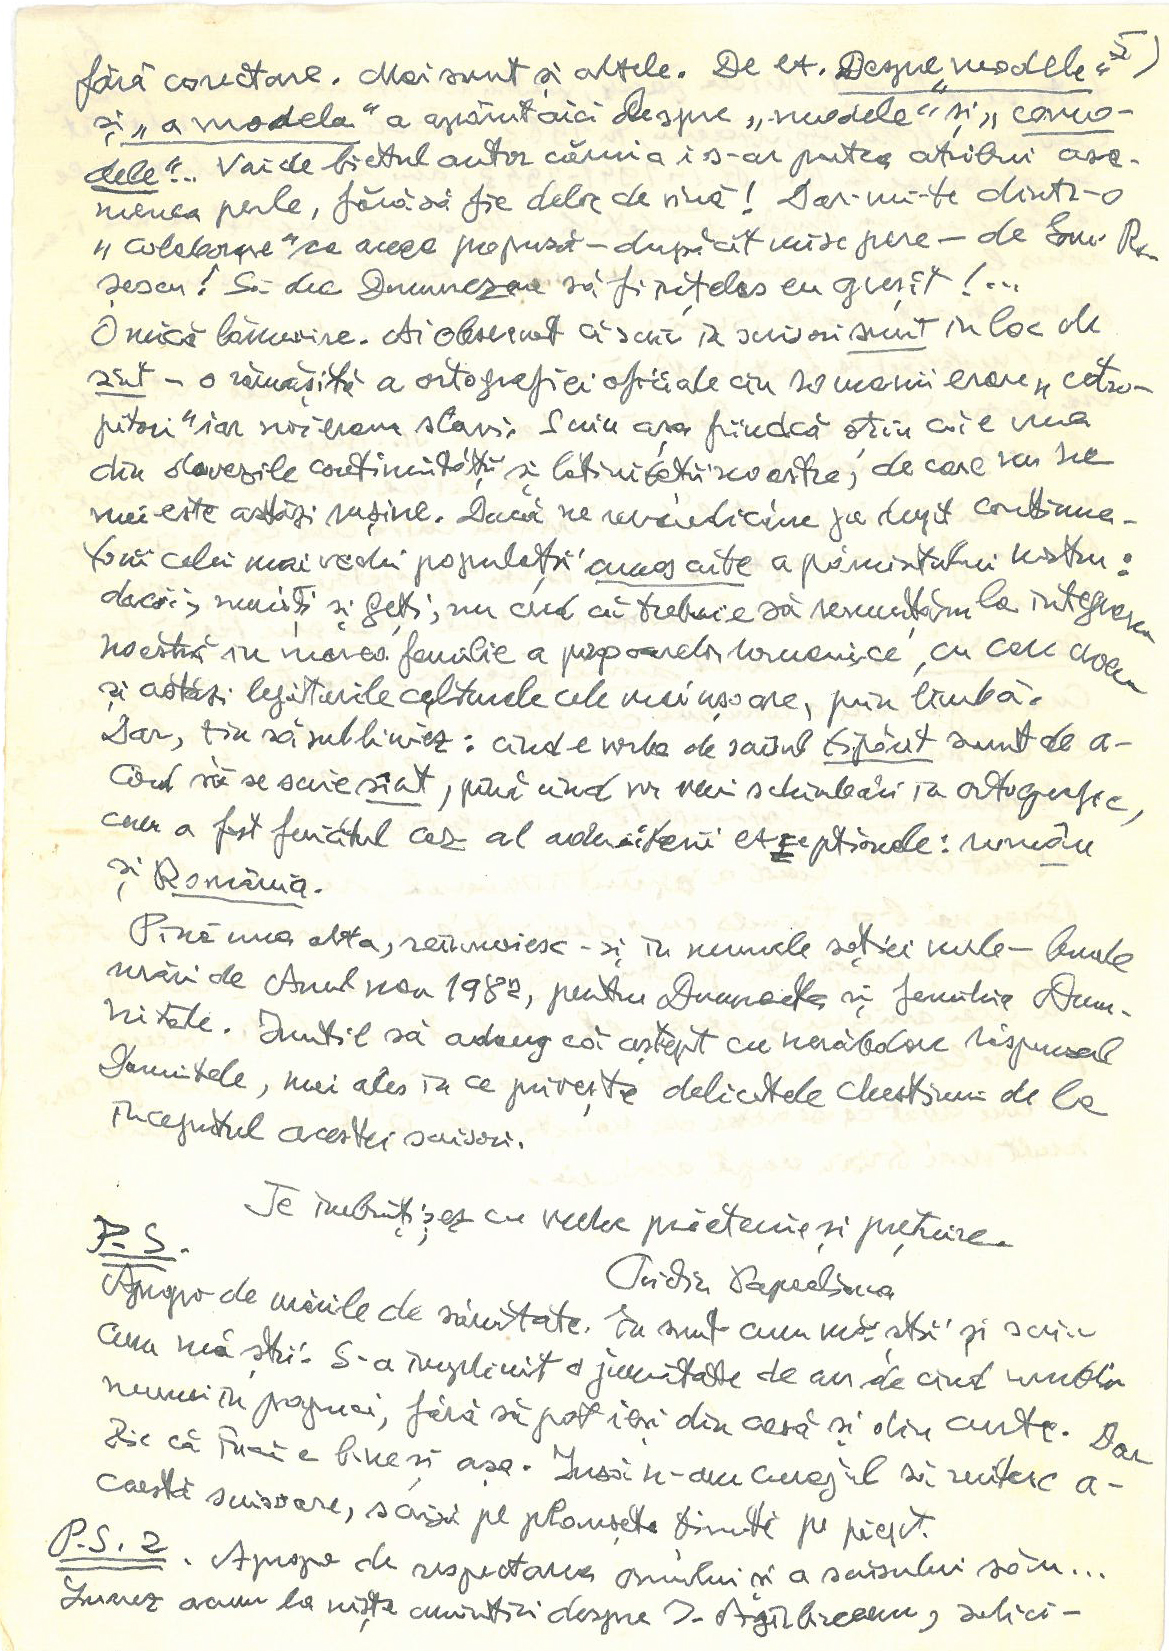 5)
fără corectare. Mai sunt și altele. De ex. Despre „modele"
și „a modela" a apărut aici Despre „modele" și „como-
dele"... Vai de bietul autor căruia i s-ar putea atribui ase-
menea perle, fără să fie deloc de vină! Dar-mi-te dintr-o
„colaborare" ca aceea propusă – după cît mi se pare – de
șescu! Să dea Dumnezeu să fi înțeles eu greșit!...
O mică lămurire. Ai observat că scriu în scrisori sunt în loc de
sînt – o rămășiță a ortografiei oficiale cin romanii erau „cotro-
pitori" iar noi eram slavi. Scriu așa fiindcă știu că e una
din dovezile continuității și latinității noastre, de care nu ne
mai este astăzi rușine. Dacă ne revendicăm pe drept continua-
torii celei mai vechi populații cunoscute a pămîntului nostru:
dacii, și geți, nu cred că trebuie să renunțăm la integrarea
noastră în marea familie a popoarelor romanice, cu care avem
și astăzi legăturile culturale cele mai ușoare, prin limbă.
Dar, țin să subliniez: cînd e vorba de scrisul tipărit sunt de a-
cord să se scrie sînt, pînă cînd vor veni schimbări în ortografie,
cum a fost fericitul caz al admiterii excepționale: român
și România.
Pînă una alta, reînnoiesc – și în numele soției mele – bunele
urări de Anul nou 1982, pentru Dumneata și familia Dum-
nitale. Inutil să adaug că aștept cu nerăbdare răspunsul
Dumitale, mai ales în ce privește delicatele chestiuni de la
începutul acestei scrisori.
Te îmbrățișez cu veche prietenie și prețuire.
Ovidiu Papadima
P.S.
Apropo de urările de sănătate. Eu sunt cum mă știi și scriu
cum mă știi. S-a împlinit o jumătate de an de cînd umblu
numai în papuci, fără să pot ieși din casă și din curte. Dar
zic că încă e bine și așa. Însă n-am curajul să recitesc a-
ceastă scrisoare, scrisă pe planșeta ținută pe piept.
P.S. 2. Apropo de respectarea omului și a scrisului său...
Lucrez acum la niște amintiri despre I. Agîrbiceanu, solici-